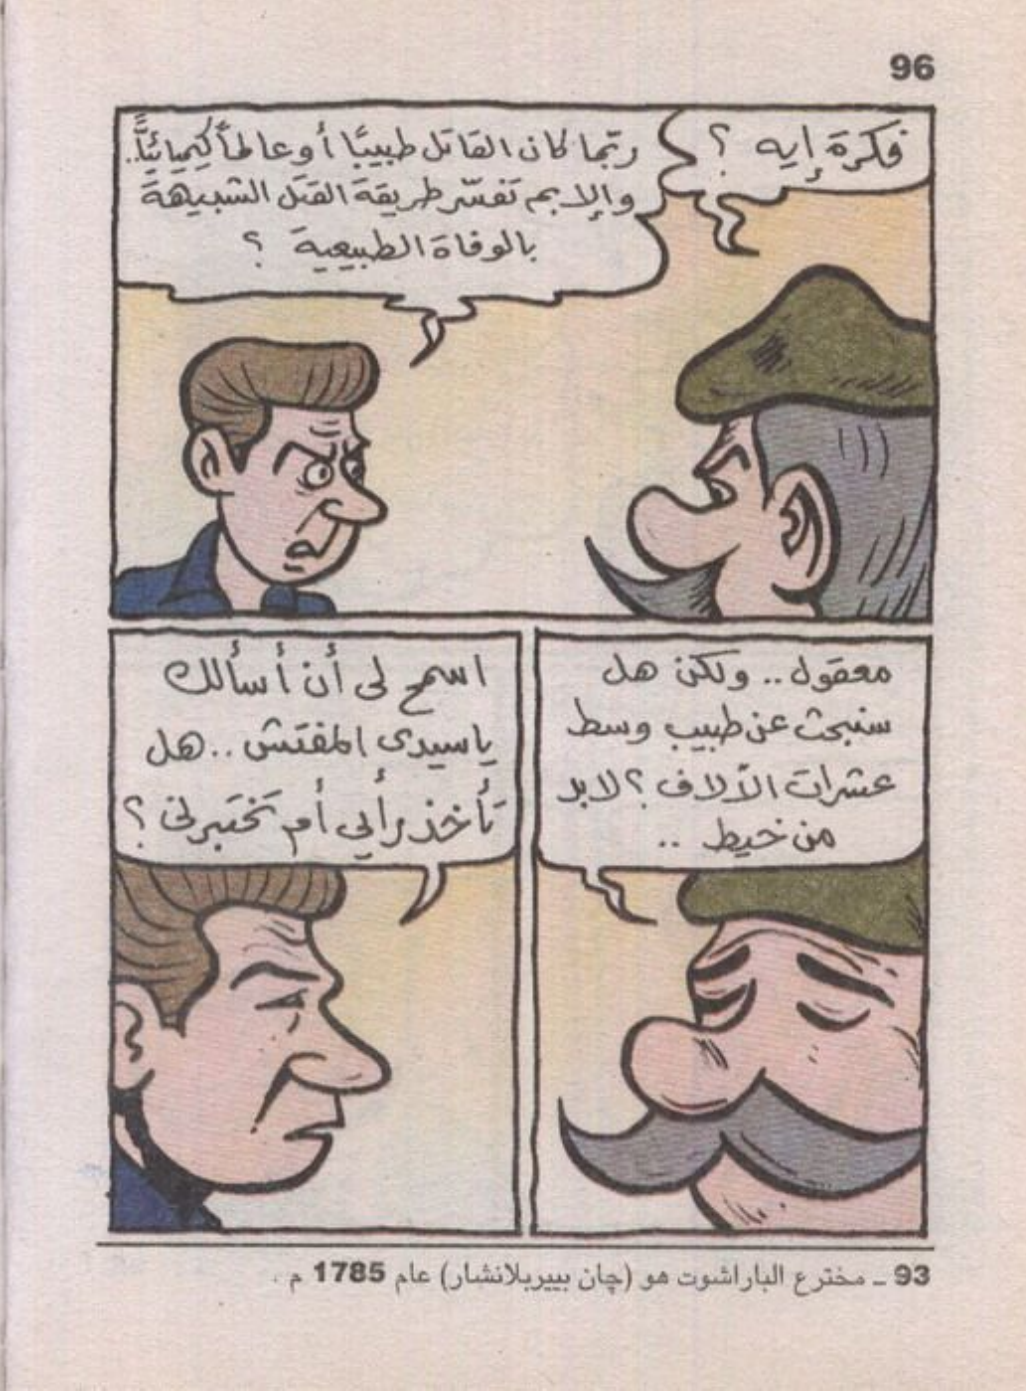 96
فكرة إيه ؟
ربّما كان القاتل طبيبًا أو عالمًا كيميائيًّا..
وإلا بم تفسّر طريقة القتل الشبيهة
بالوفاة الطبيعية ؟
معقول .. ولكن هل
سنبحث عن طبيب وسط
عشرات الآلاف ؟ لابد
من خيط ..
اسمح لى أن أسألك
ياسيدى المفتش .. هل
تأخذ برأيي أم تختبرنى ؟
93 ـ مخترع الباراشوت هو (چان بييربلانشار) عام 1785 م .